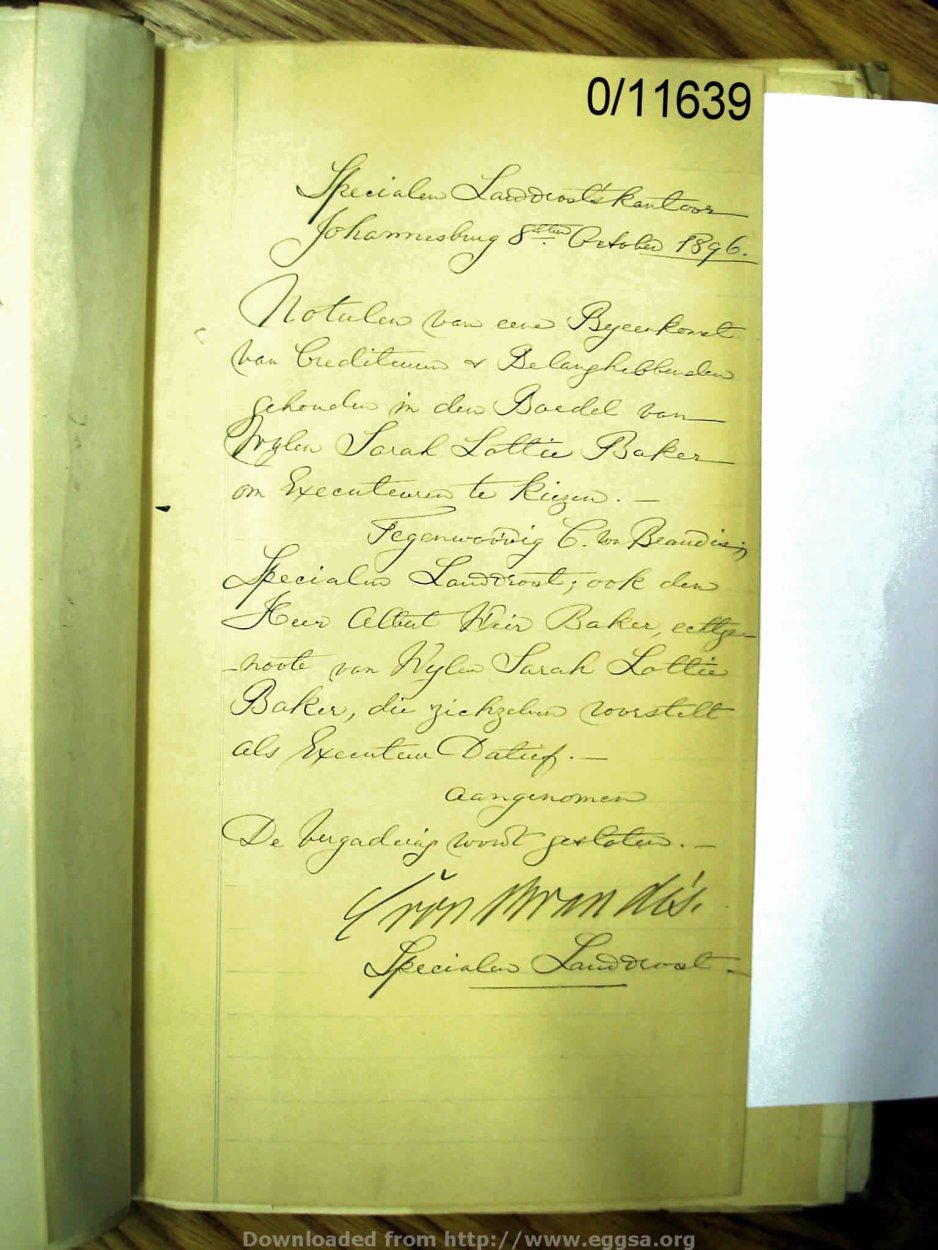 0/11639
Specialen Landdrost's kantoor
Johannesburg 8sten October 1896.
Notulen van eene Byeenkomst
van Crediteuren & Belanghebbenden
gehouden in den Boedel van
Wylen Sarah Lottie Baker
om Executeuren te kiezen. —
Tegenwoordig C. von Brandis;
Specialen Landdrost; ook den
Heer Albert Weir Baker, echtge-
-noote van Wylen Sarah Lottie
Baker, die zichzelven voorstelt
als Executeur Datief. —
Aangenomen
De Vergadering wordt gesloten. —
C von Brandis.
Specialen Landdrost —
Downloaded from http://www.eggsa.org